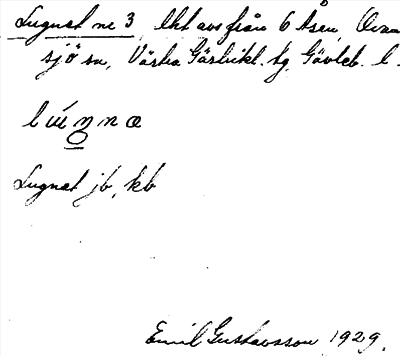 Lugnet nr 3, lht avs från 6 Åsen, Ovan
sjö sn, Västra Gästrikl. tg. Gävleb. l.
lúŋna
Lugnet jb, kb
Emil Gustavsson 1929.